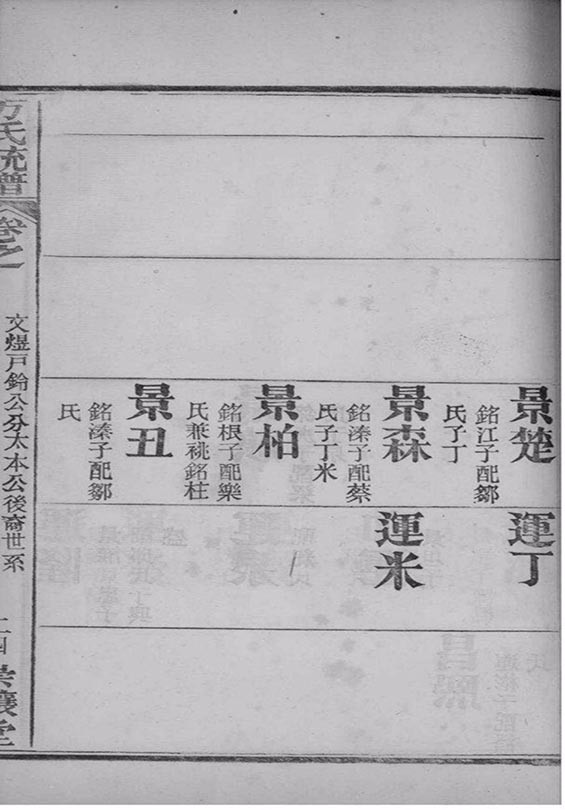 景楚
銘江子配鄒
氏子丁
景森
銘溱子配蔡
氏子丁米
景柏
銘根子配樂
氏兼祧銘柱
景丑
銘溱子配鄒
氏
運丁
運米
方氏統譜
卷之一
文煜戶鈴公分太本公後裔世系